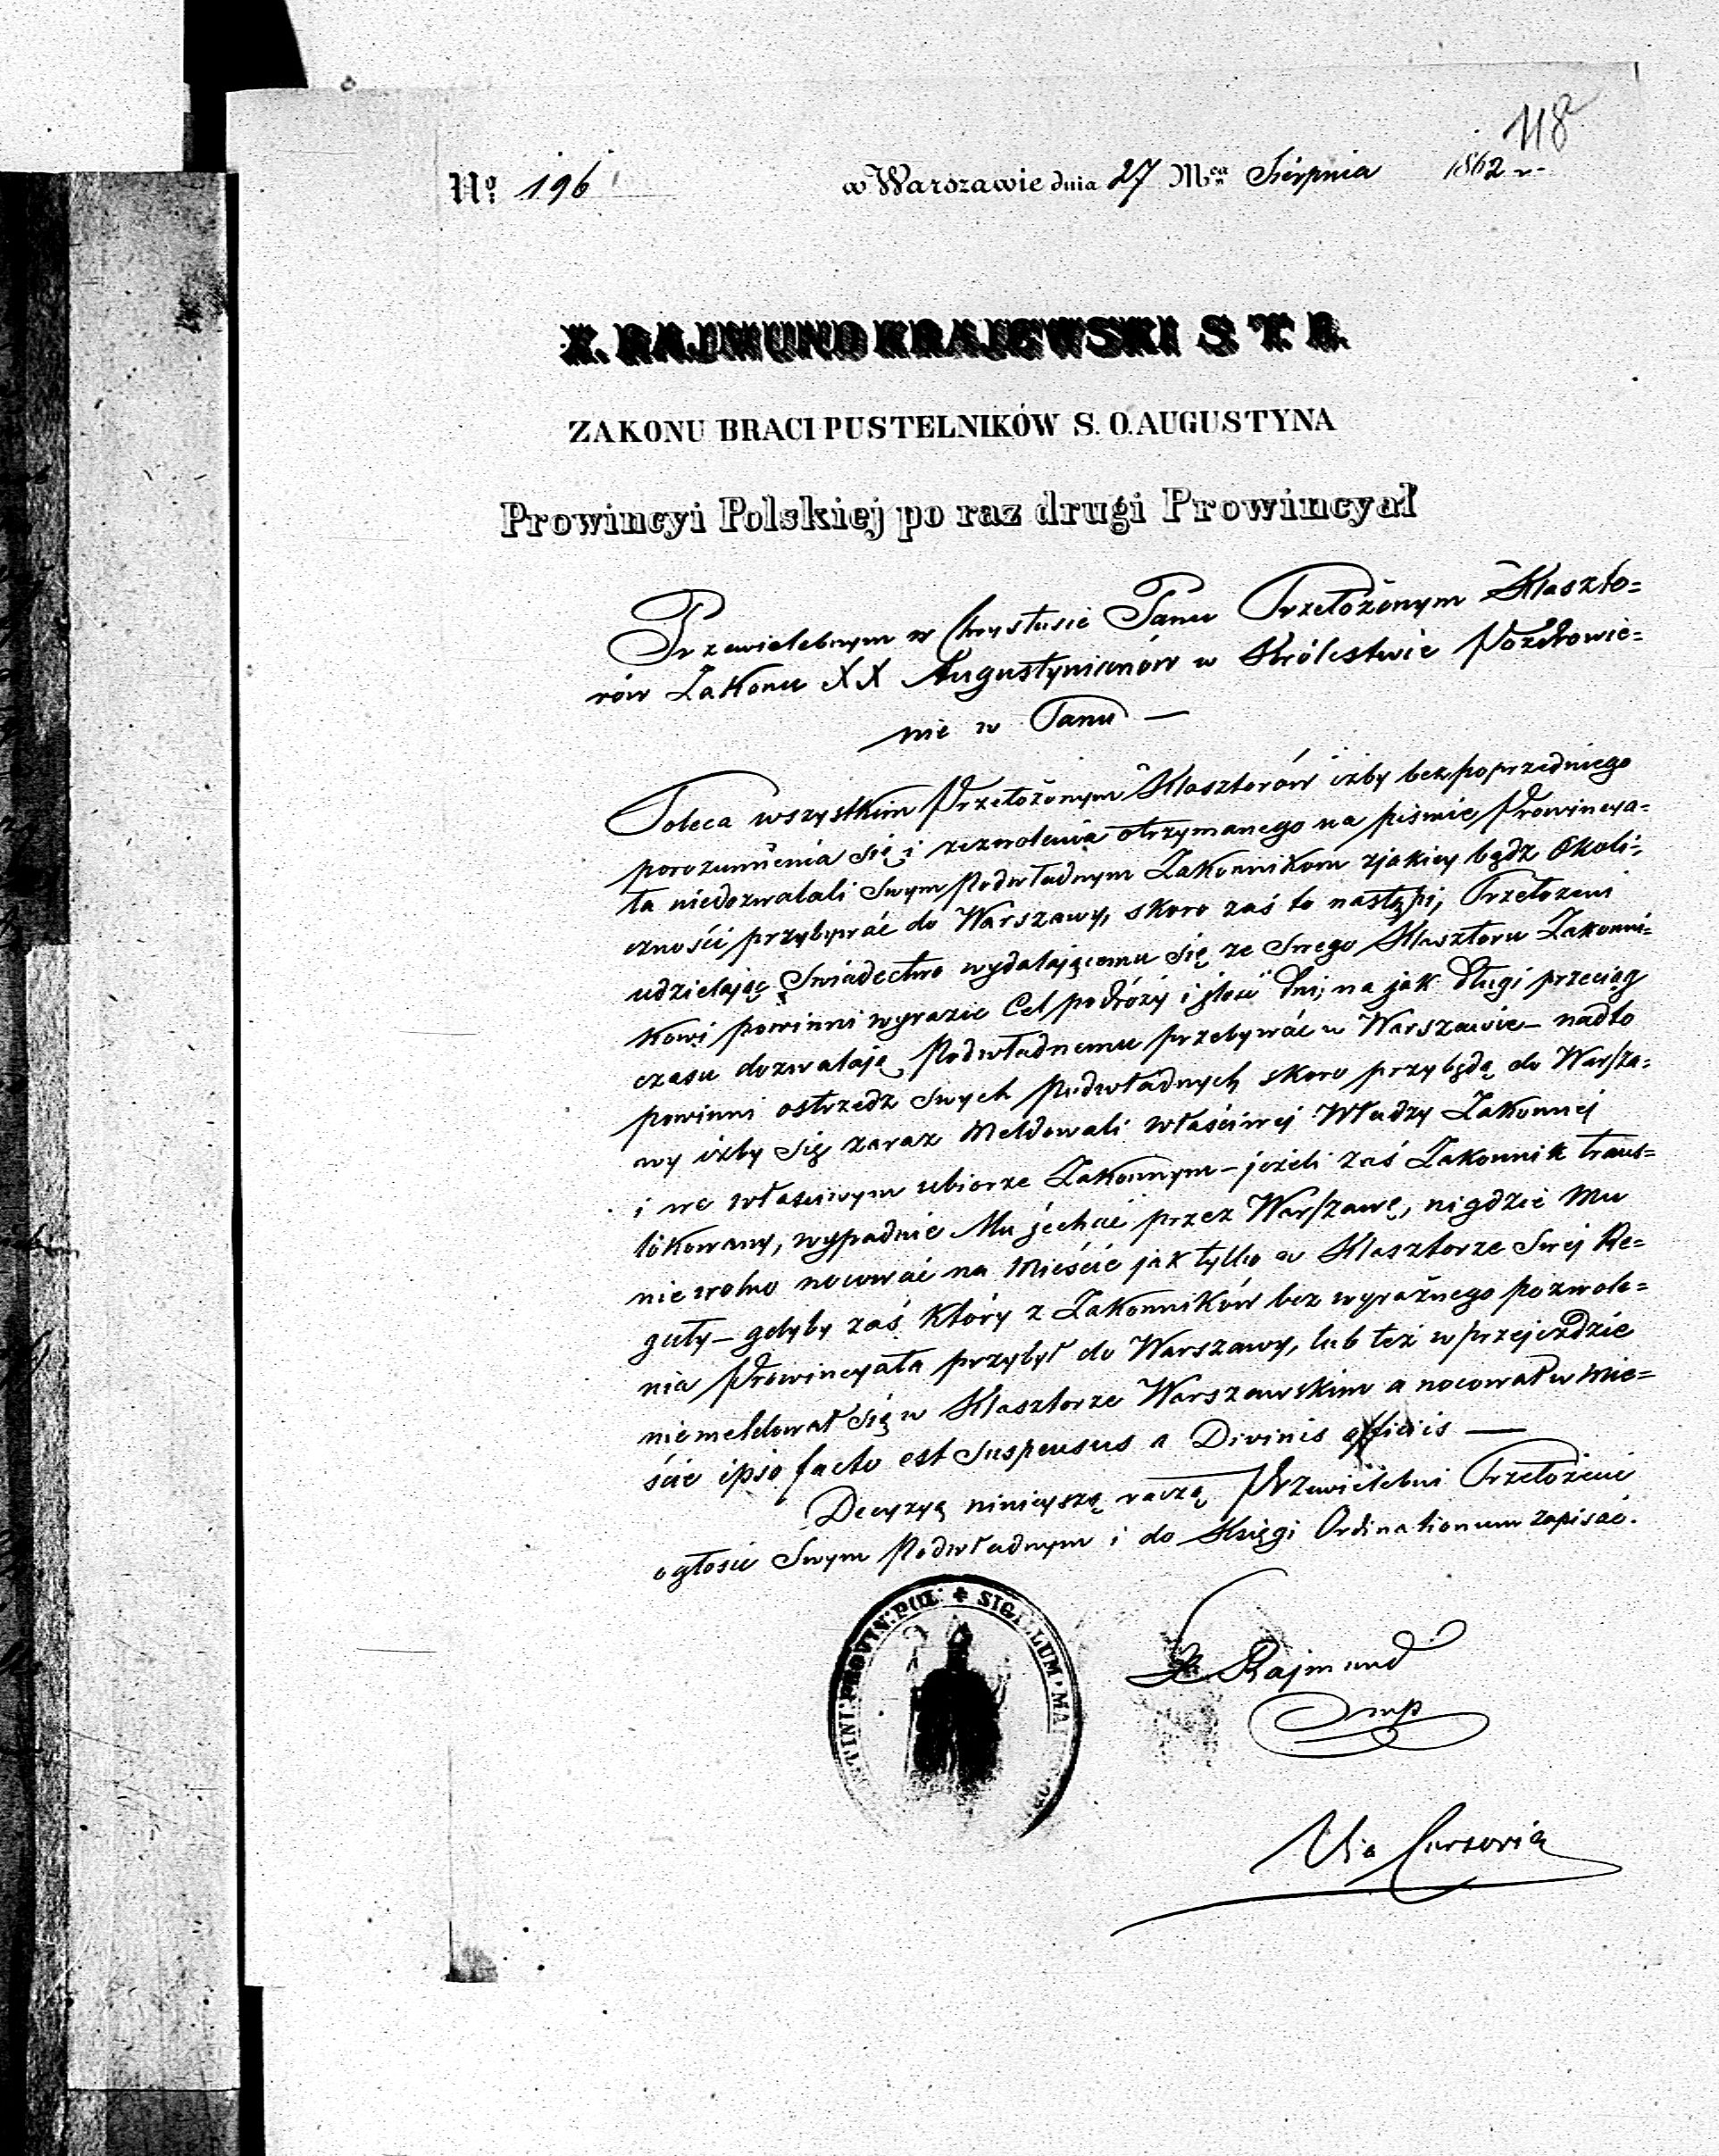 118
No 196 w Warszawie dnia 27 Mca Sierpnia 1862 r.
X. RAJMUND KRAJEWSKI S. T. B.
ZAKONU BRACI PUSTELNIKÓW S. O. AUGUSTYNA
Prowincyi Polskiej po raz drugi Prowincyał
Przewielebnym w Chrystusie Panu Przełożonym Klaszto=
rów Zakonu XX Augustynianów w Królestwie Pozdrowie=
nie w Panu —
Poleca wszystkim Przełożonym Klasztorów iżby bez poprzedniego
porozumienia się i zezwolenia otrzymanego na piśmie Prowincya=
ła niedozwalali Swym Podwładnym Zakonnikom zjakiey bądz Okoli=
czności przybywać do Warszawy, skoro zaś to nastąpi, Przełożeni
udzielając Świadectwo wydalającemu się ze Swego Klasztoru Zakonni=
kowi powinni wyrazić Cel podróży i ilość dni, na jak długi przeciąg
czasu dozwalają Podwładnemu przebywać w Warszawie — nadto
powinni ostrzedz Swych Podwładnych skoro przybędą do Warsza=
wy iżby się zaraz Meldowali właściwej Władzy Zakonnej
i we właściwym ubiorze Zakonnym — jeżeli zaś Zakonnik trans=
lokowany, wypadnie Mu jechać przez Warszawę, nigdzie Mu
nie wolno nocować na Mieście jak tylko w Klasztorze Swej Re=
guły — gdyby zaś który z Zakonników bez wyraźnego pozwole=
nia Prowincyała przybył do Warszawy, lub też w przejeździe
niemeldował się w Klasztorze Warszawskim a nocował w Mie=
ście ipso facto est Suspensus a Divinis officiis —
Decyzyą niniejszą raczą Przewielebni Przełożeni
ogłosić Swym Podwładnym i do Księgi Ordinationum zapisać.
TINI: PROVIN: POL: + SIGILLUM MA
X Rajmund
mp
Via Cursoria